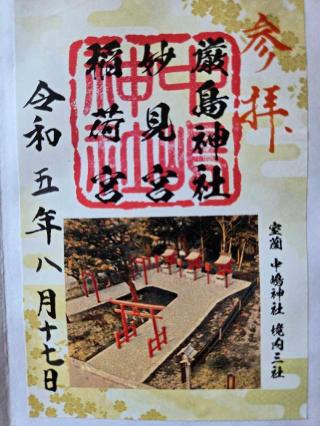 参拝
厳島神社
妙見宮
稲荷宮
令和五年八月十七日
室蘭 中嶋神社 境内三社
中嶋神社